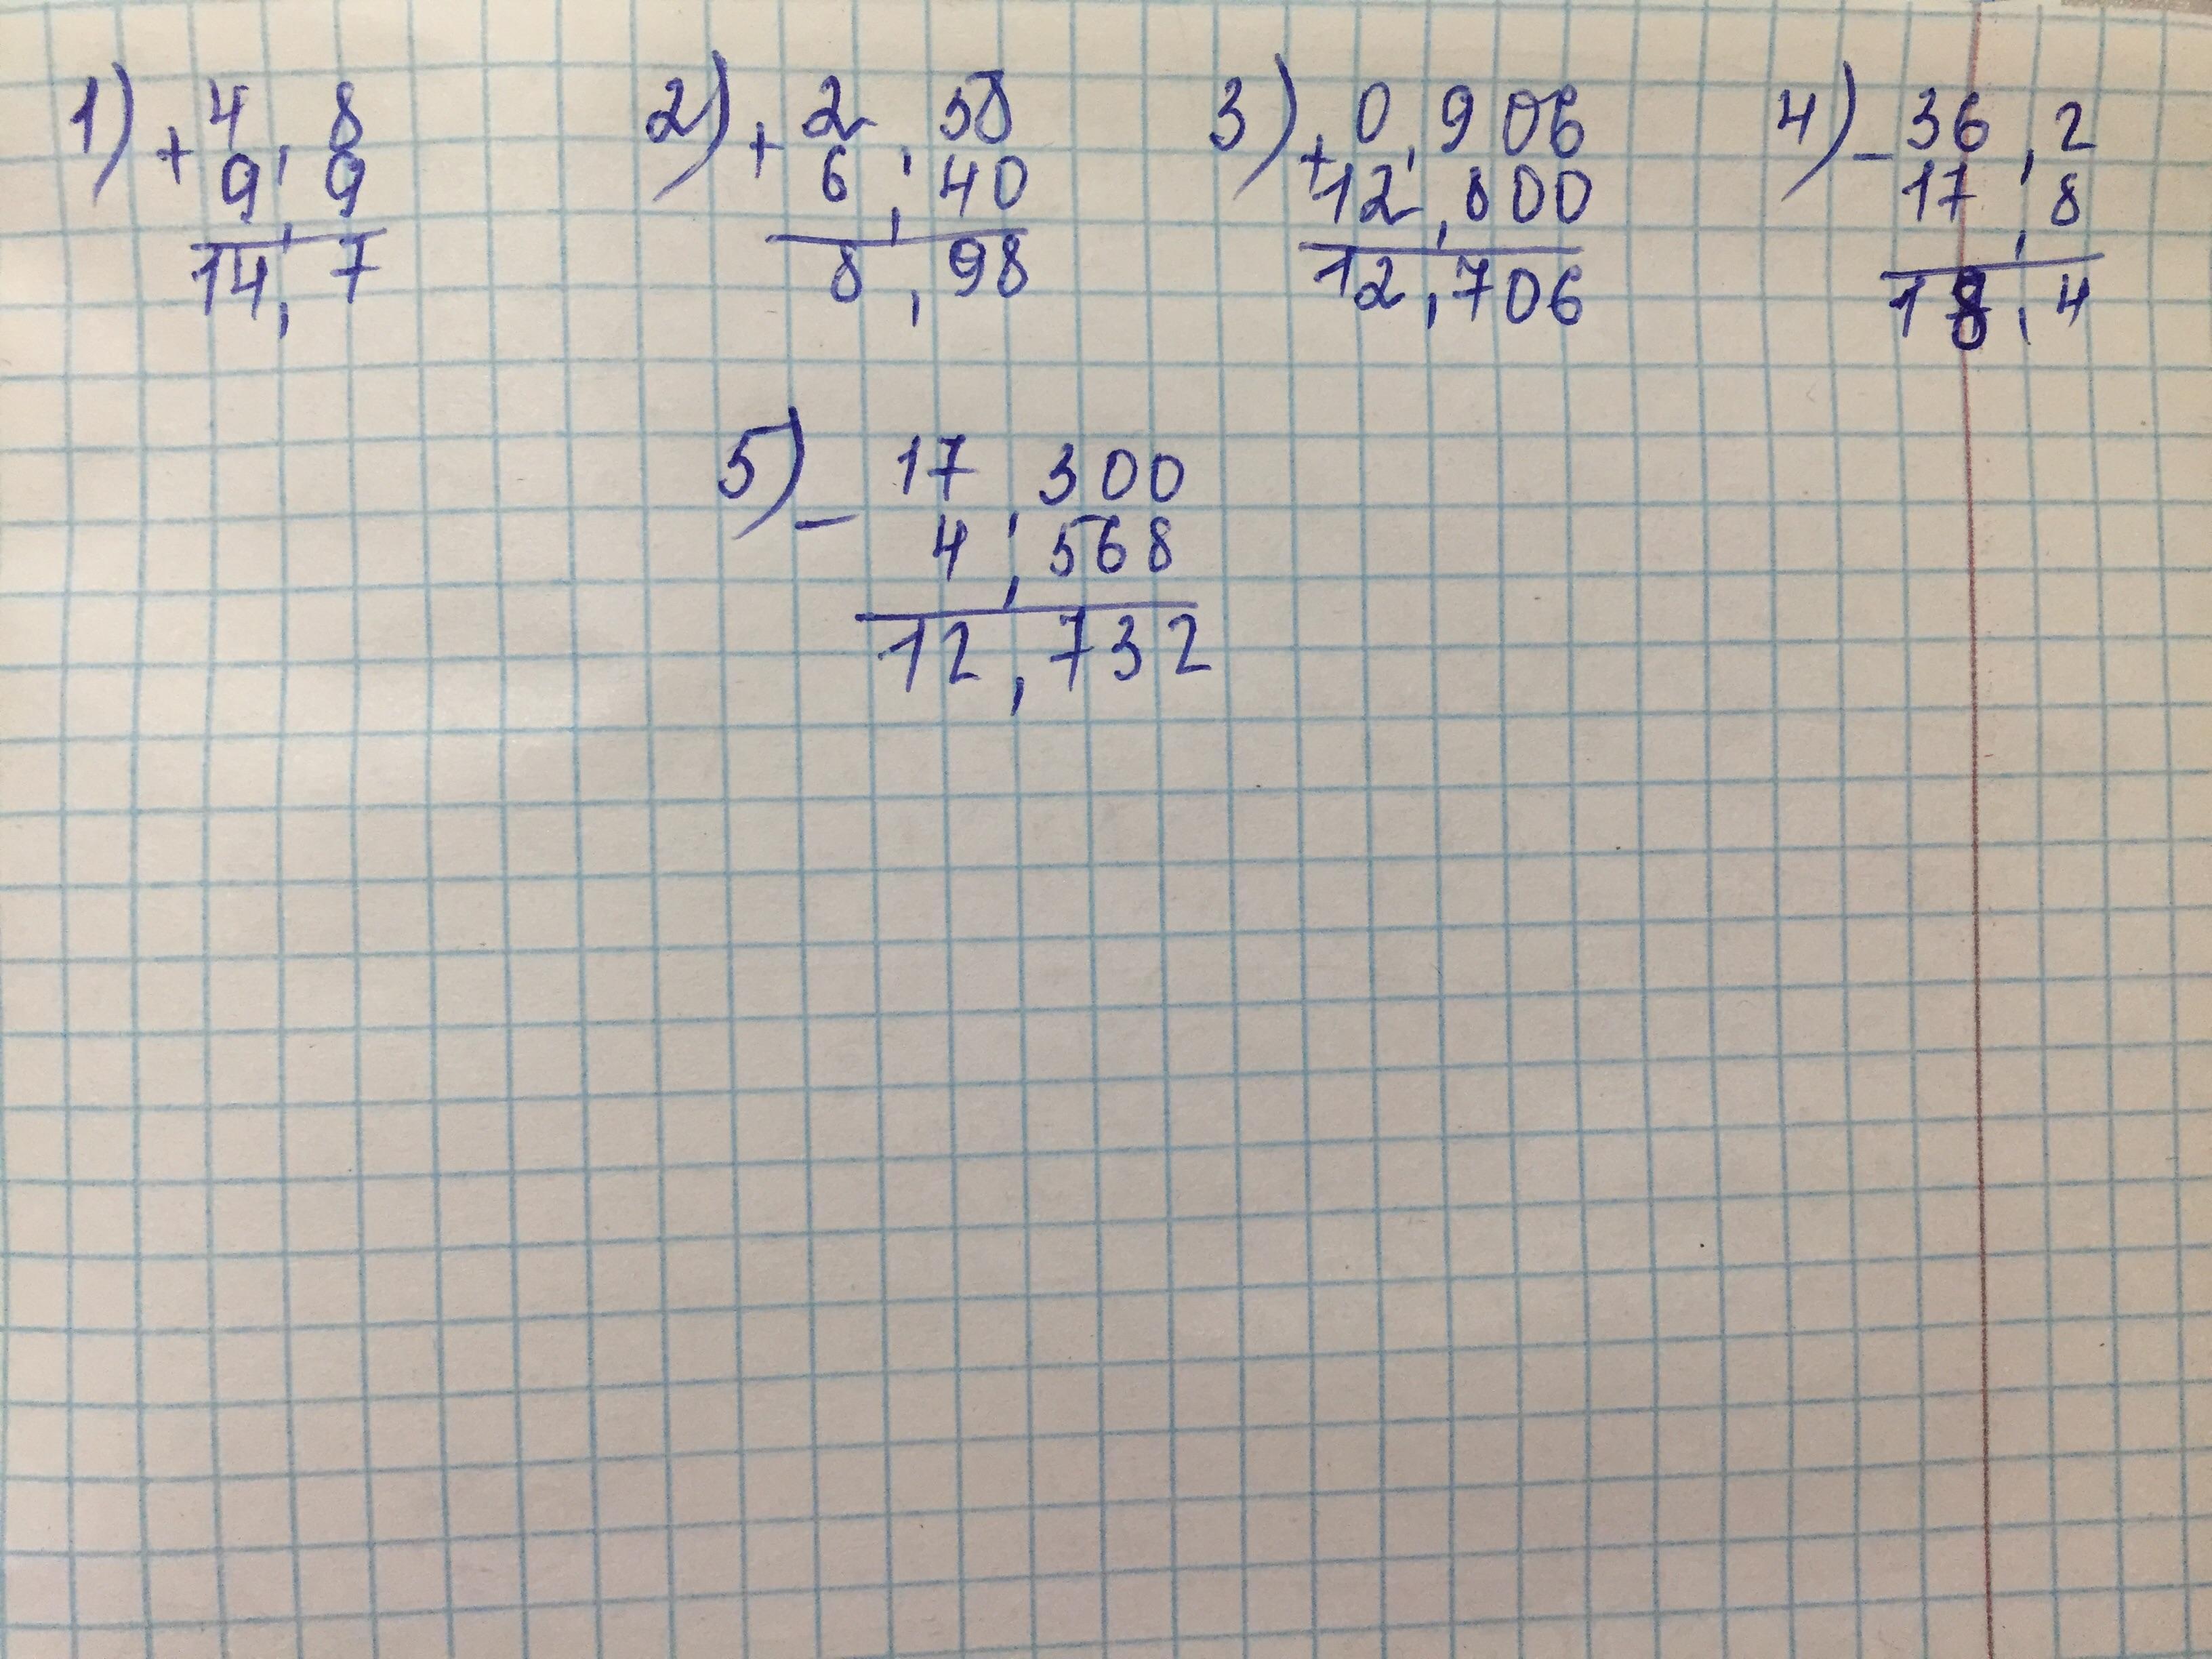 1) + 4,8 2) + 2,58 3) + 0,906 4) - 36,2
9,9 6,40 12,800 17,8
14,7 8,98 12,706 18,4
5) - 17,300
4,568
12,732